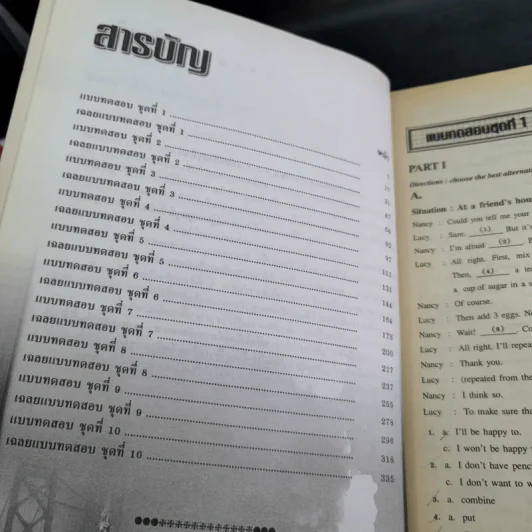 สารบัญ
หน้า
แบบทดสอบ ชุดที่ 1
เฉลยแบบทดสอบ ชุดที่ 1
แบบทดสอบ ชุดที่ 2
เฉลยแบบทดสอบ ชุดที่ 2
แบบทดสอบ ชุดที่ 3
เฉลยแบบทดสอบ ชุดที่ 3
แบบทดสอบ ชุดที่ 4
เฉลยแบบทดสอบ ชุดที่ 4
แบบทดสอบ ชุดที่ 5
เฉลยแบบทดสอบ ชุดที่ 5
แบบทดสอบ ชุดที่ 6
เฉลยแบบทดสอบ ชุดที่ 6
แบบทดสอบ ชุดที่ 7
เฉลยแบบทดสอบ ชุดที่ 7
แบบทดสอบ ชุดที่ 8
เฉลยแบบทดสอบ ชุดที่ 8 237
แบบทดสอบ ชุดที่ 9 255
เฉลยแบบทดสอบ ชุดที่ 9 278
แบบทดสอบ ชุดที่ 10 296
เฉลยแบบทดสอบ ชุดที่ 10 318
335
แบบทดสอบชุดที่ 1
PART I
Directions : choose the best
A.
Situation : At a friend's
Nancy : Could you tell me your
Lucy : Sure. (1) But it's
Nancy : I'm afraid (2)
Lucy : All right. First, mix
Then, (4) a
a cup of sugar in a
Nancy : Of course.
Lucy : Then add 3 eggs.
Nancy : Wait! (8)
Lucy : All right. I'll
Nancy : Thank you.
Lucy : (repeated from the
Nancy : I think so.
Lucy : To make sure
1. a. I'll be happy to.
c. I won't be happy
2. a. I don't have
c. I don't want
3. a. combine
4. a. put